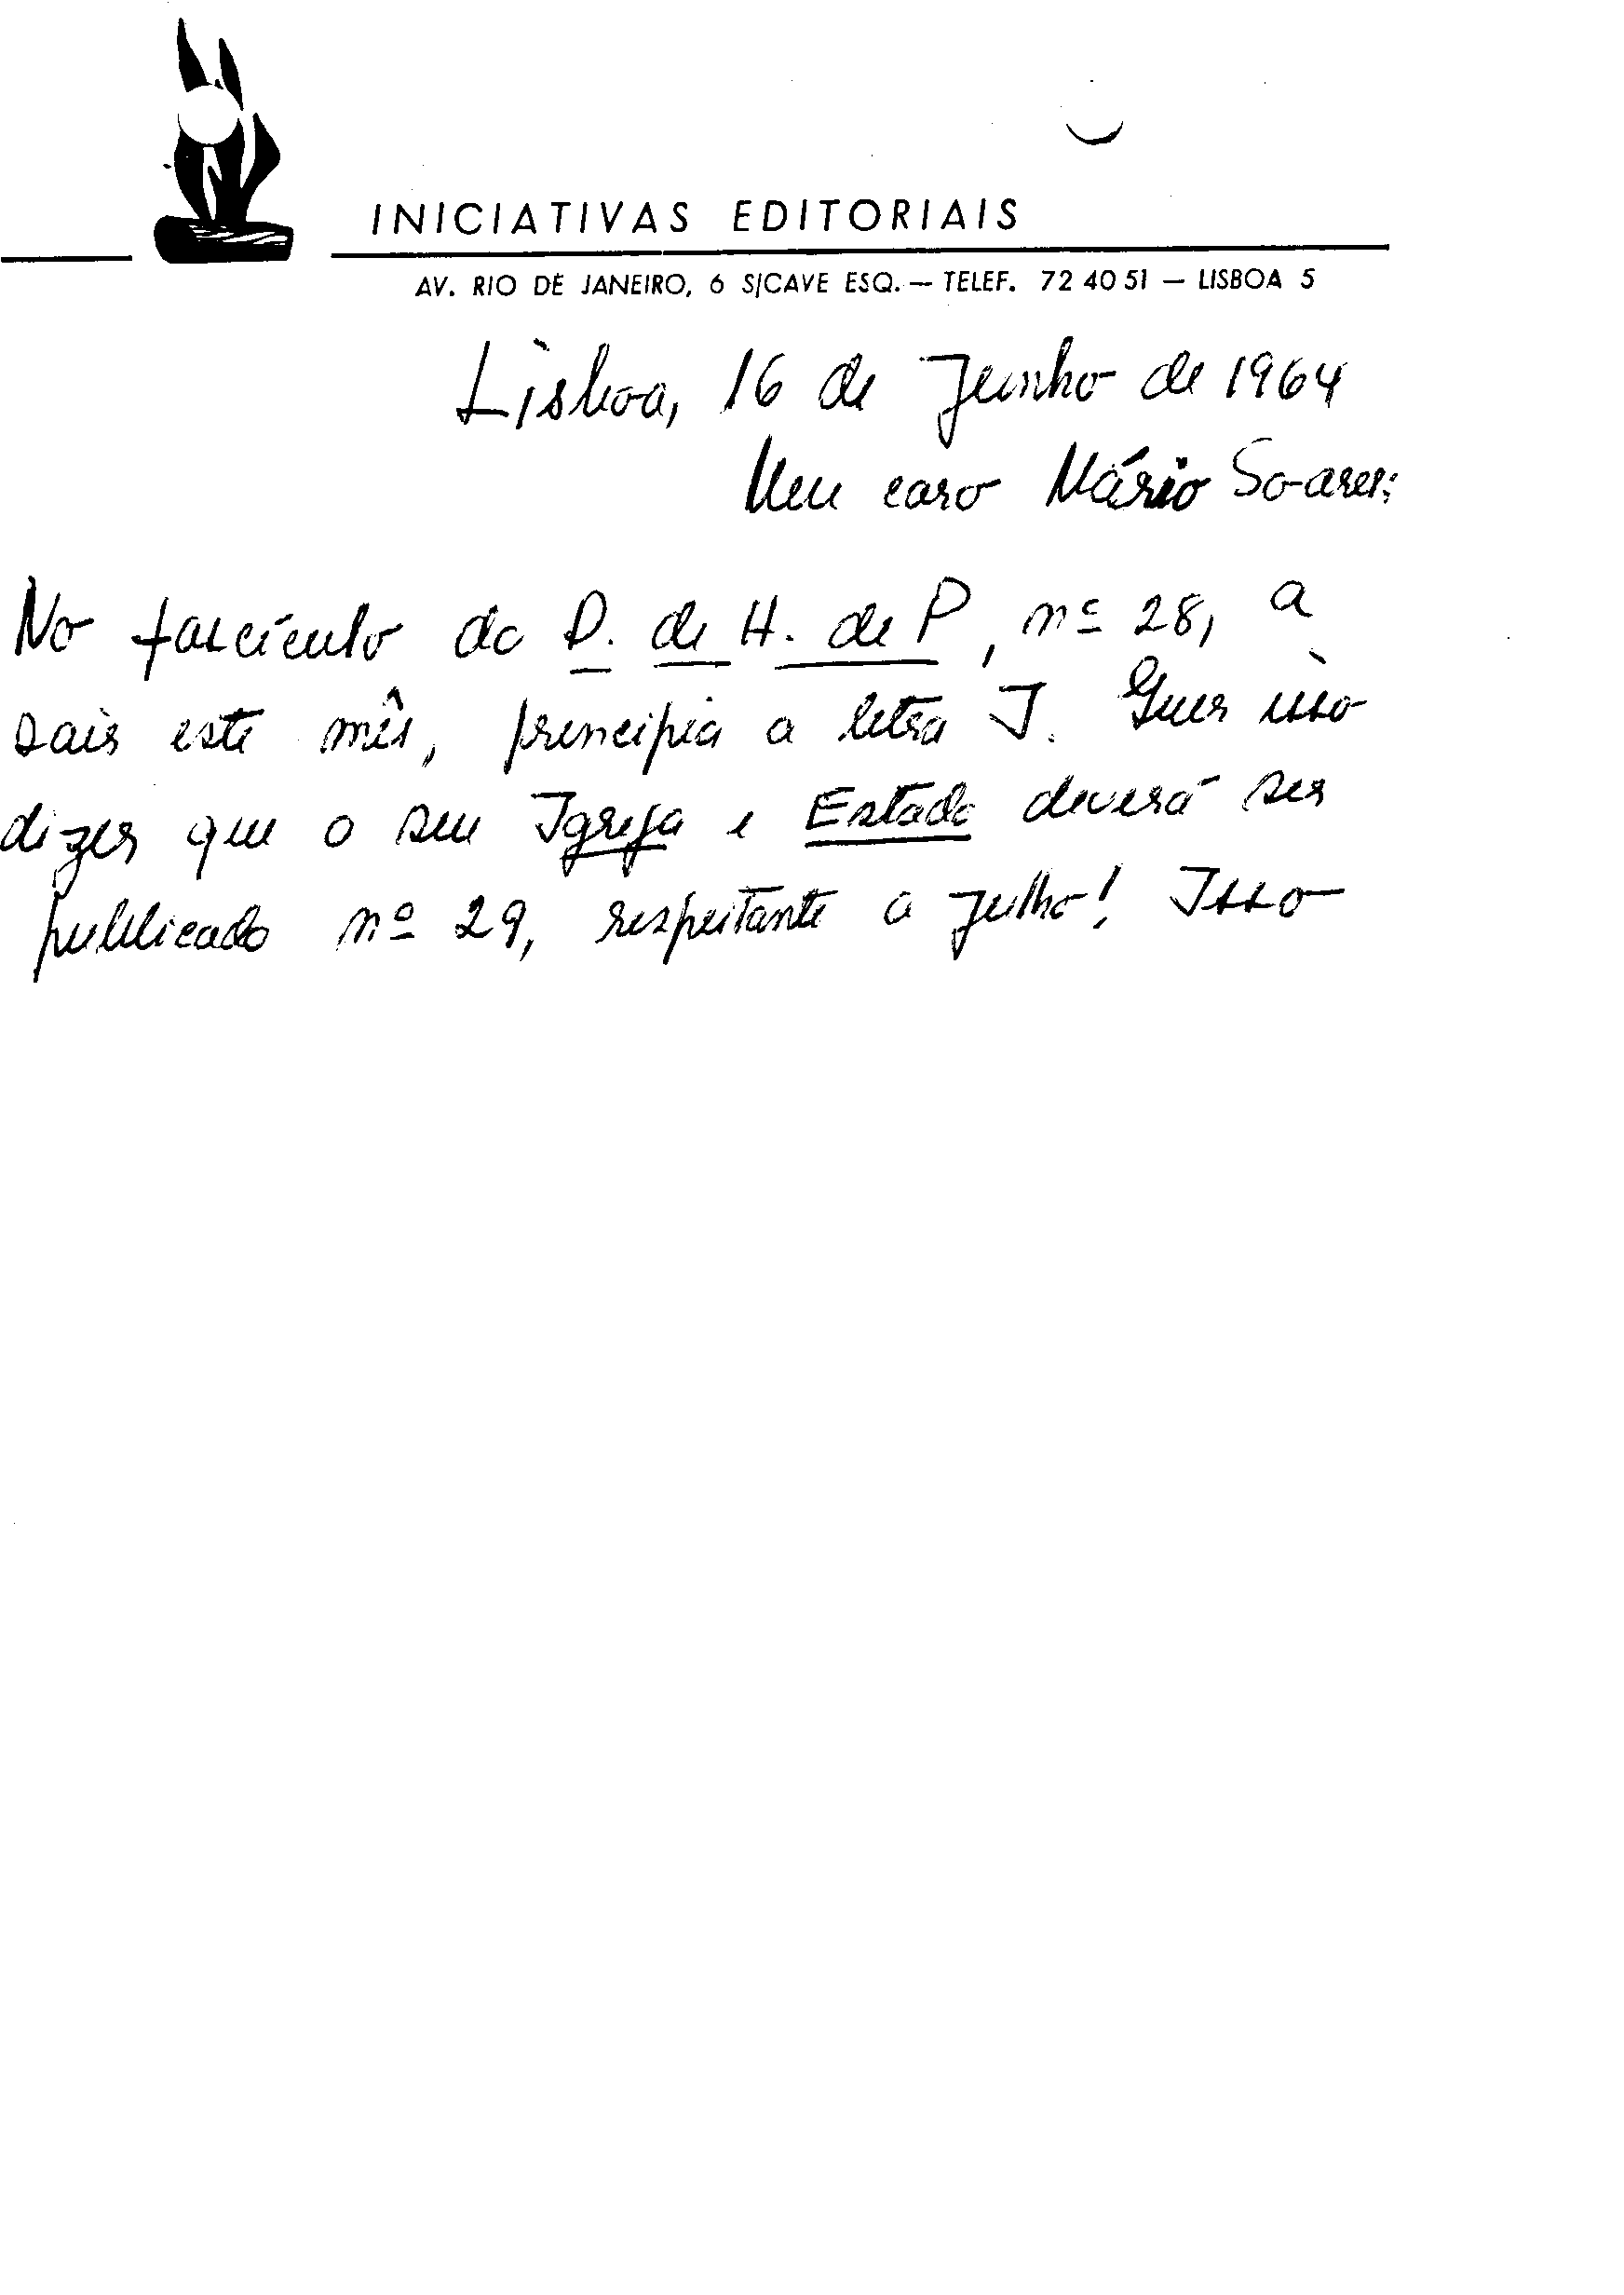 INICIATIVAS EDITORIAIS
AV. RIO DE JANEIRO, 6 S/CAVE ESQ. — TELEF. 72 40 51 — LISBOA 5
Lisboa, 16 de Junho de 1964
Meu caro Mário Soares:
No fascículo do D. de H. de P, nº 28, a
sair este mês, principia a letra I. Quer isso
dizer que o seu Igreja e Estado deverá ser
publicado nº 29, respeitante a Julho! Isso